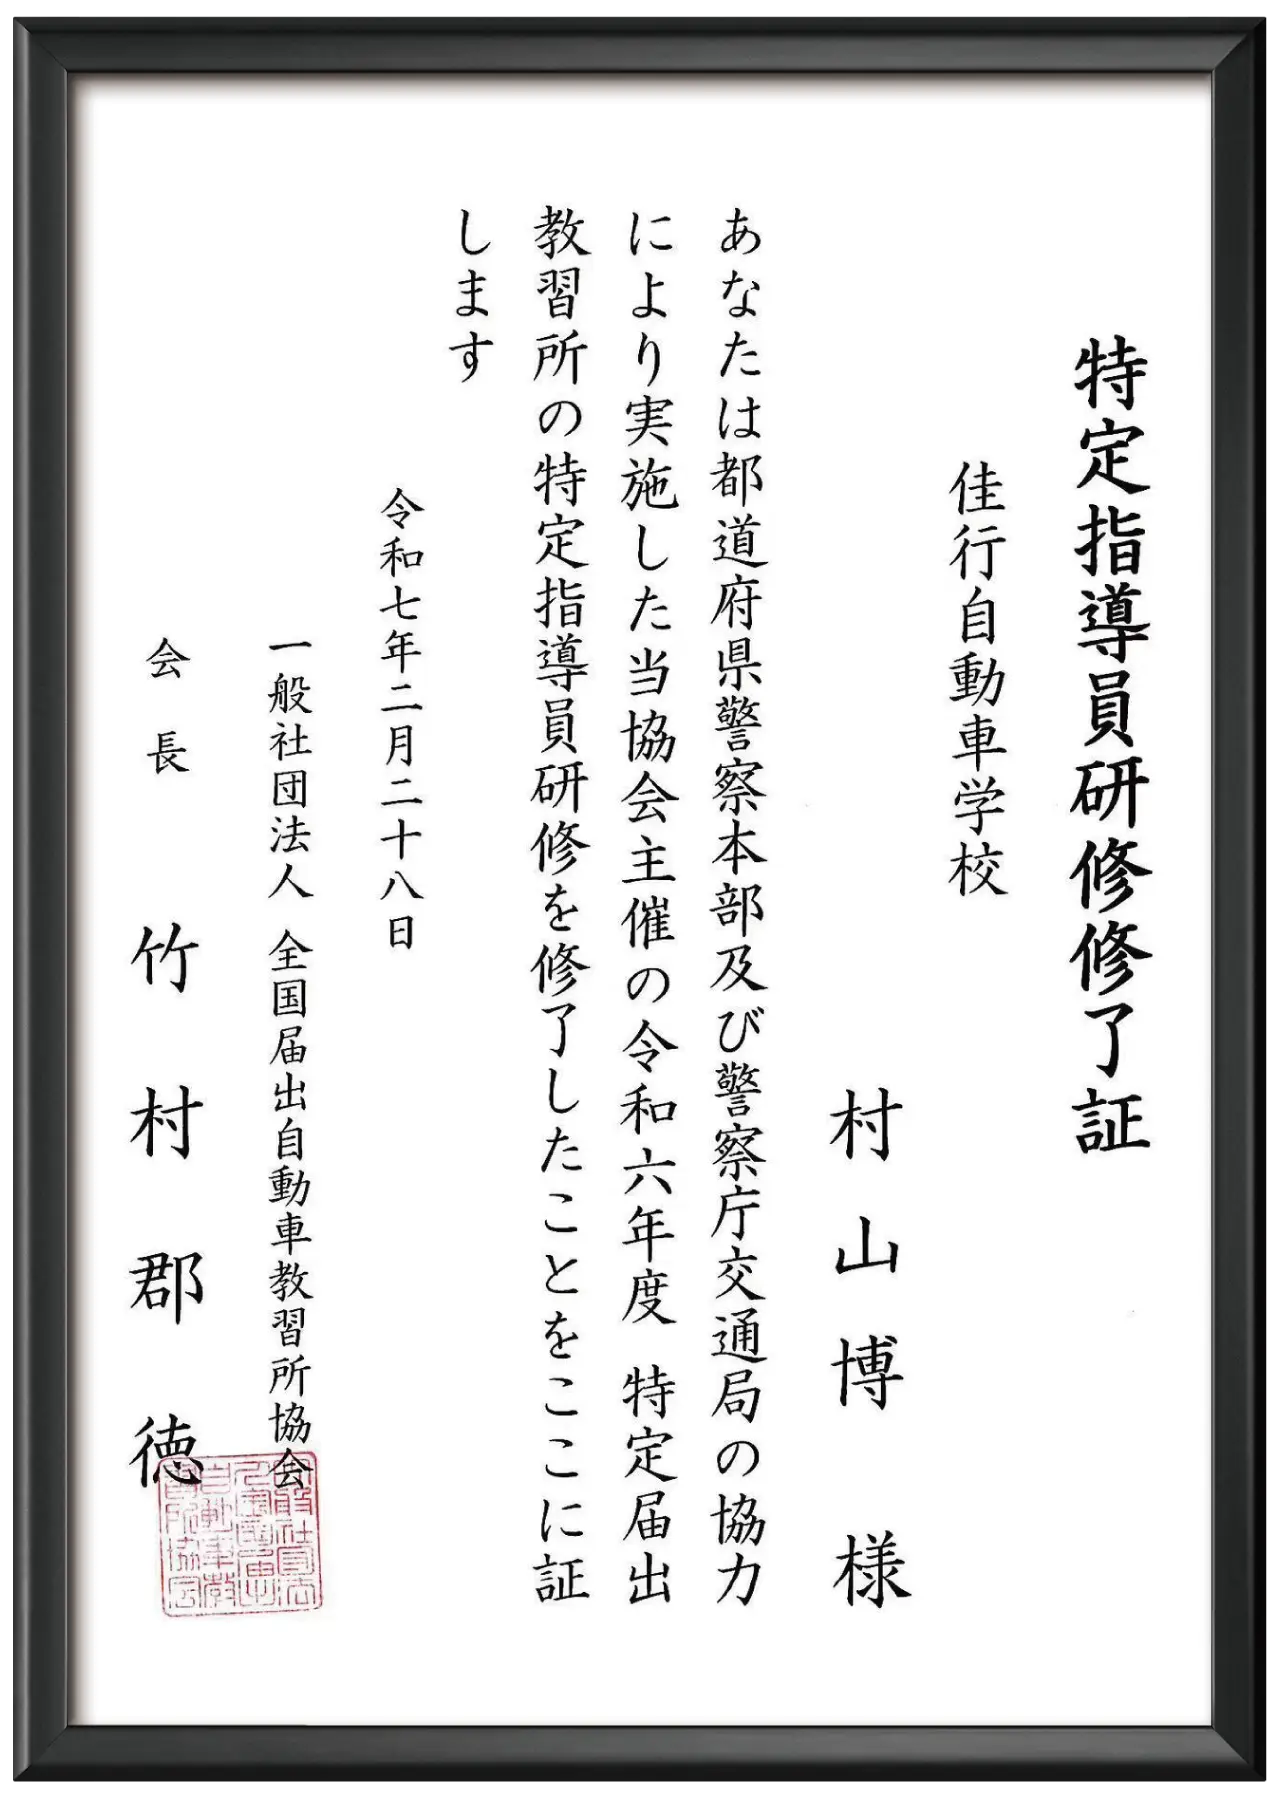 特定指導員研修修了証
佳行自動車学校
村山博 様
あなたは都道府県警察本部及び警察庁交通局の協力
により実施した当協会主催の令和六年度 特定届出
教習所の特定指導員研修を修了したことをここに証
します
令和七年二月二十八日
一般社団法人 全国届出自動車教習所協会
会長 竹村郡徳